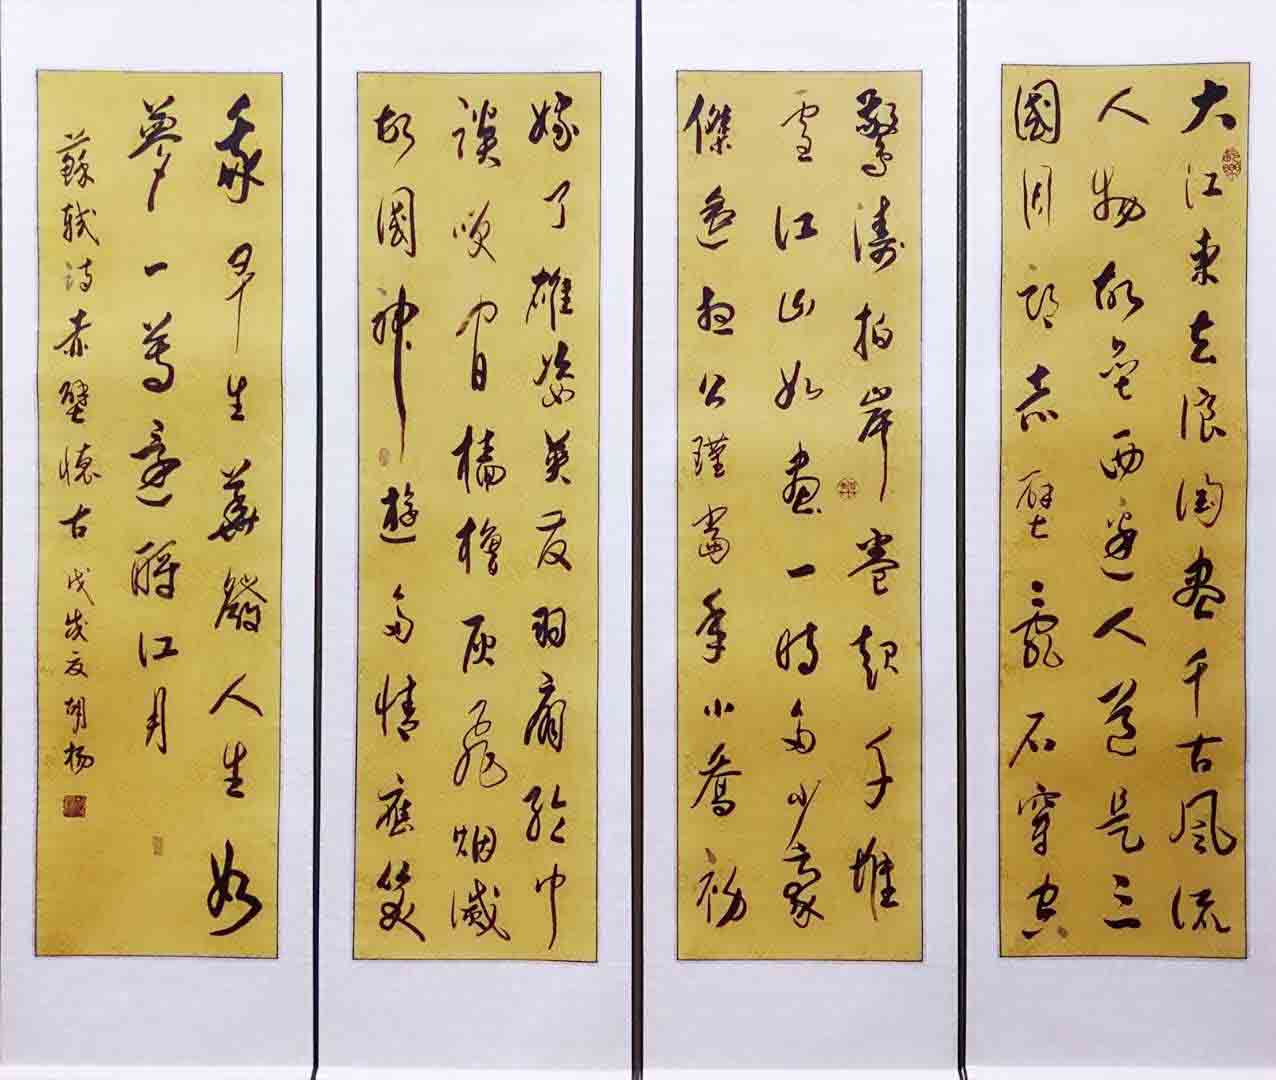 大江東去浪淘盡千古風流
人物故壘西邊人道是三
國周郎赤壁亂石穿空
驚濤拍岸卷起千堆
雪江山如畫一時多少豪
傑遙想公瑾當年小喬初
嫁了雄姿英发羽扇綸巾
談咲間檣櫓灰飛烟滅
故國神遊多情應笑
我早生華發人生如
夢一尊還酹江月
蘇軾詩赤壁懷古 戊戌夏胡楊